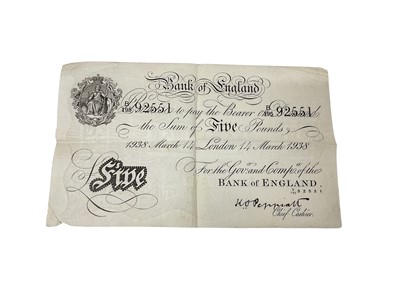 Bank of England
B/195 92551 to pay the Bearer B/195 92551
the Sum of Five Pounds
1938 March 14 London 14 March 1938
For the Govr. and Compa. of the
BANK OF ENGLAND.
Five
K.O. Peppiatt
Chief Cashier.